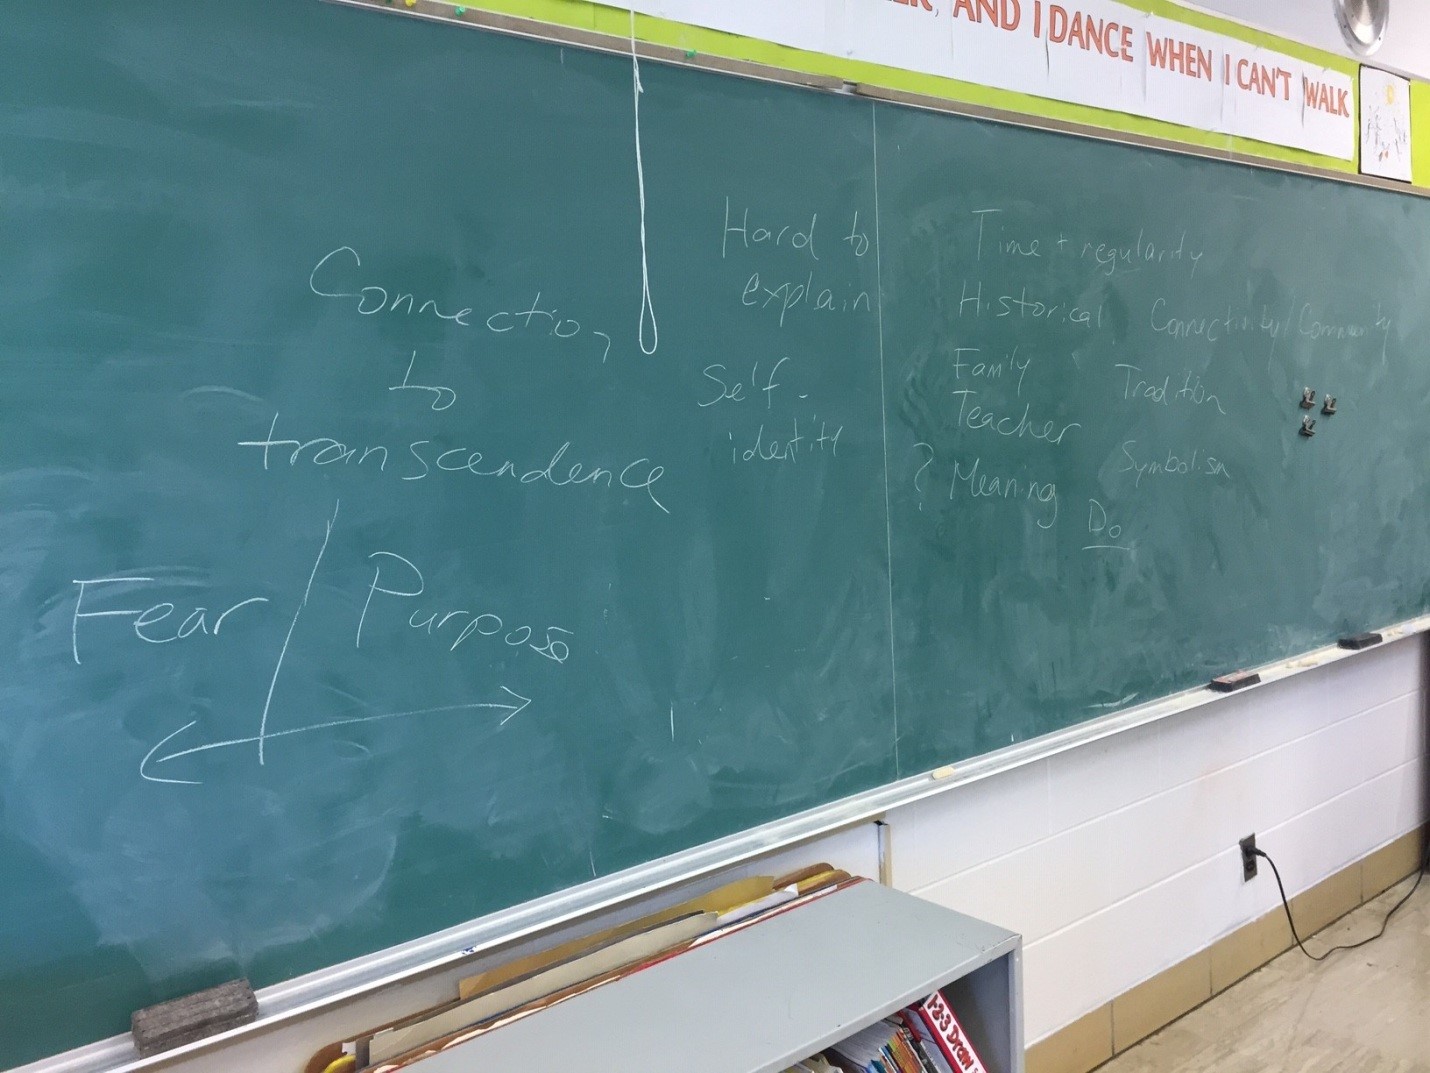 AND I DANCE WHEN I CAN'T WALK
Connection
to
transcendence
Fear / Purpose
Hard to
explain
Self-
identity
Time + regularity
Historical Connectivity/Community
Family Tradition
Teacher
? Meaning Symbolism
Do
1-2-3 Draw